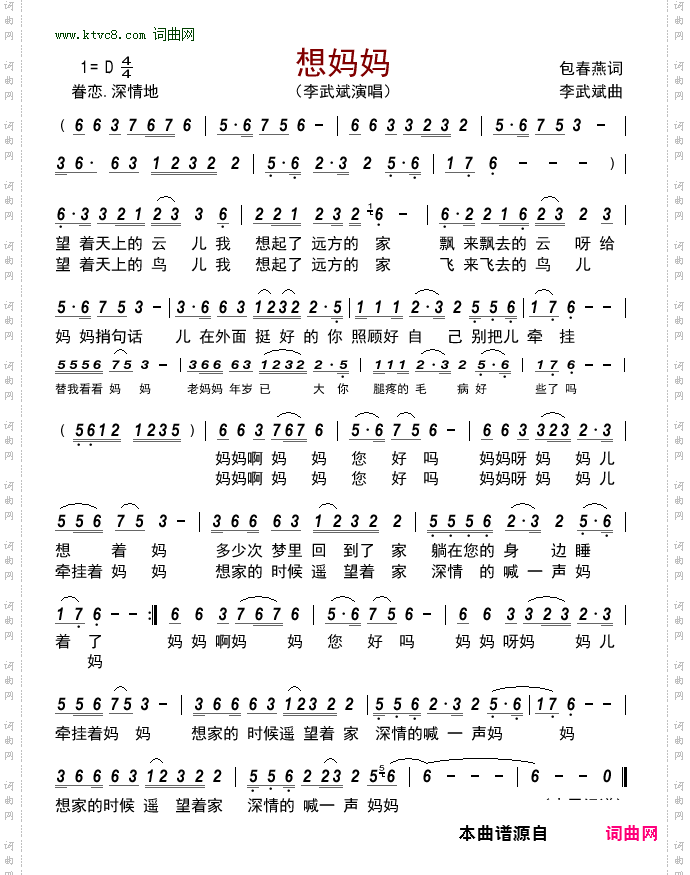 www.ktvc8.com 词曲网
1= D 4/4
想妈妈
包春燕词
眷恋.深情地
（李武斌演唱）
李武斌曲
( 6 6 3 7 6 7 6 | 5 · 6 7 5 6 - | 6 6 3 3 2 3 2 | 5 · 6 7 5 3 - |
3 6 · 6 3 1 2 3 2 2 | 5 · 6 2 · 3 2 5 · 6 | 1 7 6 - - - ) |
6 · 3 3 2 1 2 3 3 6 | 2 2 1 2 3 2 1 6 - | 6 · 2 2 1 6 2 3 2 3 |
望 着天上的 云 儿我 想起了 远方的 家 飘 来飘去的 云 呀给
望 着天上的 鸟 儿我 想起了 远方的 家 飞 来飞去的 鸟 儿
5 · 6 7 5 3 - | 3 · 6 6 3 1 2 3 2 2 · 5 | 1 1 1 2 · 3 2 5 5 6 | 1 7 6 - - |
妈 妈捎句话 儿 在外面 挺 好 的 你 照顾好 自 己 别把儿 牵 挂
5 5 5 6 7 5 3 - | 3 6 6 6 3 1 2 3 2 2 · 5 | 1 1 1 2 · 3 2 5 · 6 | 1 7 6 - - |
替我看看 妈 妈 老妈妈 年岁 已 大 你 腿疼的 毛 病 好 些了 吗
( 5 6 1 2 1 2 3 5 ) | 6 6 3 7 6 7 6 | 5 · 6 7 5 6 - | 6 6 3 3 2 3 2 · 3 |
妈妈啊 妈 妈 您 好 吗 妈妈呀 妈 妈 儿
妈妈啊 妈 妈 您 好 吗 妈妈呀 妈 妈 儿
5 5 6 7 5 3 - | 3 6 6 6 3 1 2 3 2 2 | 5 5 5 6 2 · 3 2 5 · 6 |
想 着 妈 多少次 梦里 回 到了 家 躺在您的 身 边 睡
牵挂着 妈 妈 想家的 时候 遥 望着 家 深情 的 喊 一 声 妈
1 7 6 - - :‖ 6 6 3 7 6 7 6 | 5 · 6 7 5 6 - | 6 6 3 3 2 3 2 · 3 |
着 了 妈 妈 啊妈 妈 您 好 吗 妈 妈 呀妈 妈 儿
妈
5 5 6 7 5 3 - | 3 6 6 6 3 1 2 3 2 2 | 5 5 5 6 2 · 3 2 5 · 6 | 1 7 6 - - |
牵挂着妈 妈 想家的 时候遥 望着 家 深情的喊 一 声妈 妈
3 6 6 6 3 1 2 3 2 2 | 5 5 6 2 2 3 2 5 5 6 | 6 - - - | 6 - - 0 ‖
想家的时候 遥 望着家 深情的 喊一 声 妈妈
本曲谱源自 词曲网